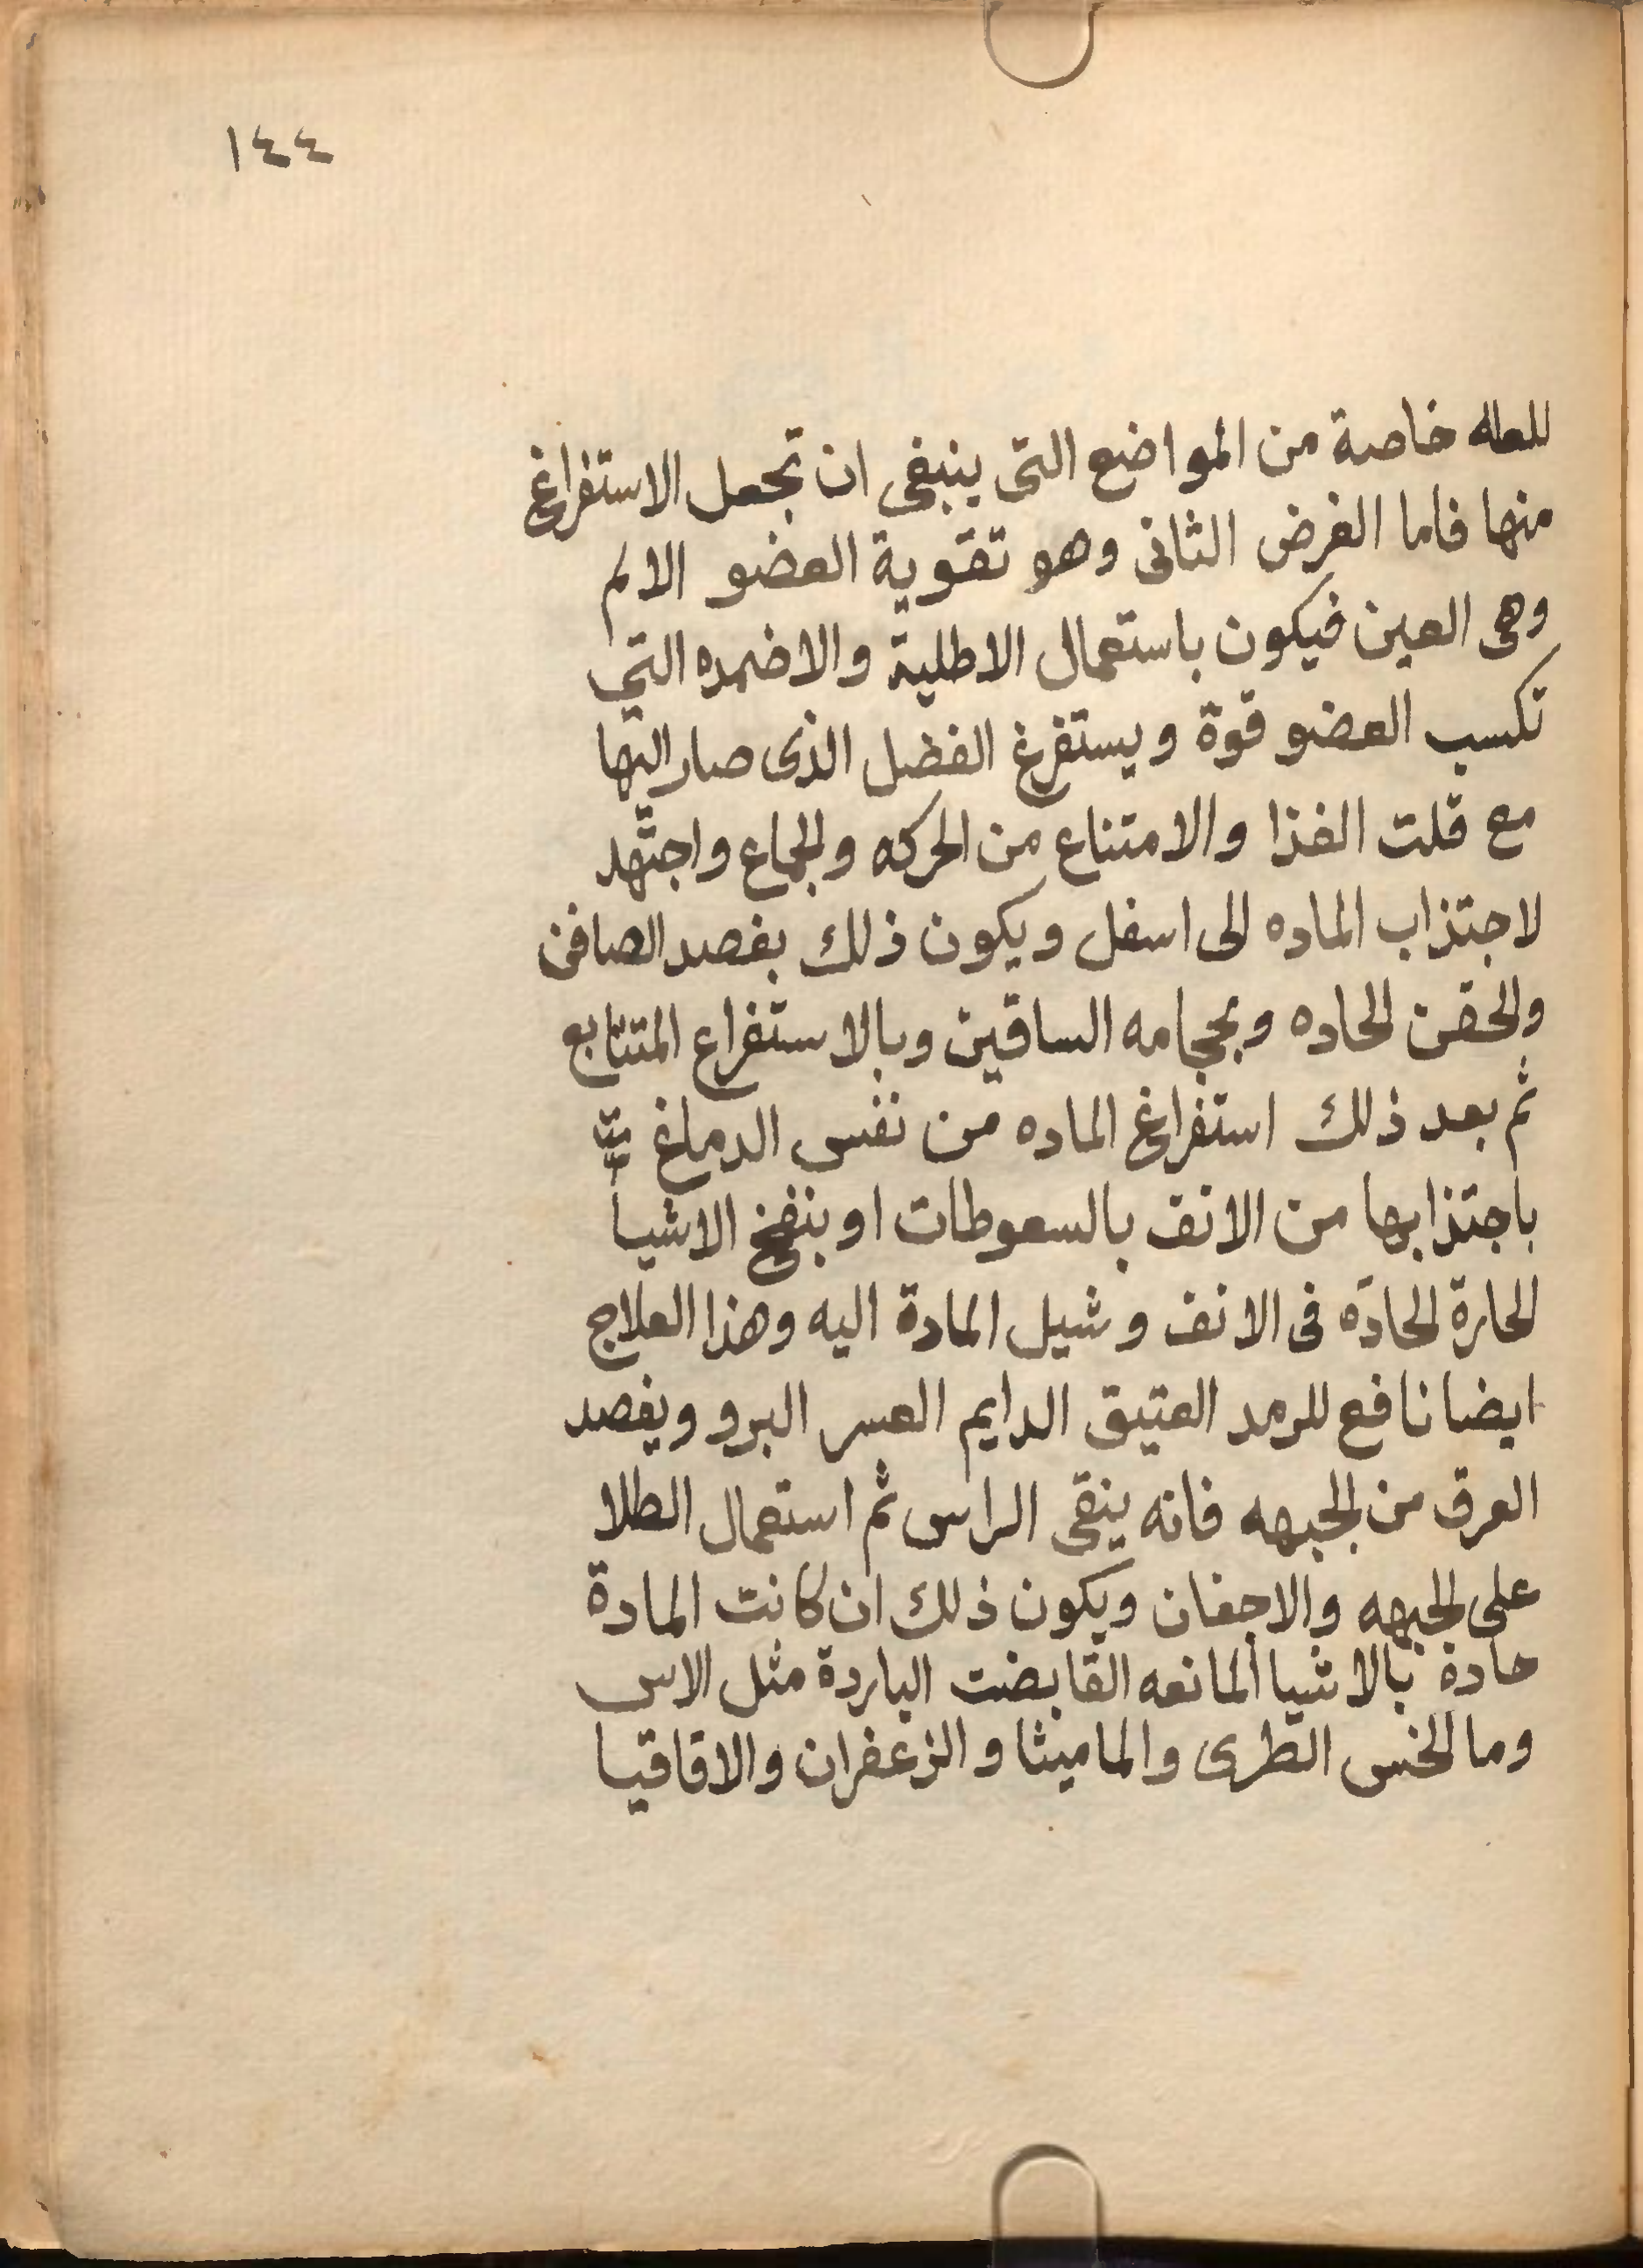 ١٤٤
للعله خاصة من المواضع التى ينبغى ان تجعل الاستفراغ
منها فاما الغرض الثانى وهو تقوية العضو الالم
وهى العين فيكون باستعمال الاطلية والاضمده التي
تكسب العضو قوة ويستفرغ الفضل الذى صار اليها
مع قلت الغذا والامتناع من الحركه والجماع واجتهد
لاجتذاب الماده الى اسفل ويكون ذلك بفصد الصافن
والحقن الحاده وبحجامه الساقين وبالاستفراع المتتابع
ثم بعد ذلك استفراغ الماده من نفس الدماغ
باجتذابها من الانف بالسعوطات او بنفخ الاشيا
الحارة الحادة فى الانف وشيل المادة اليه وهذا العلاج
ايضا نافع للرمد العتيق الدايم العسر البرو ويفصد
العرق من الجبهه فانه ينقى الراس ثم استعمال الطلا
على الجبهه والاجفان ويكون ذلك ان كانت المادة
حادة بالاشيا المانعه القابضت الباردة مثل الاس
وما الخس الطرى والماميثا والزعفران والاقاقيا